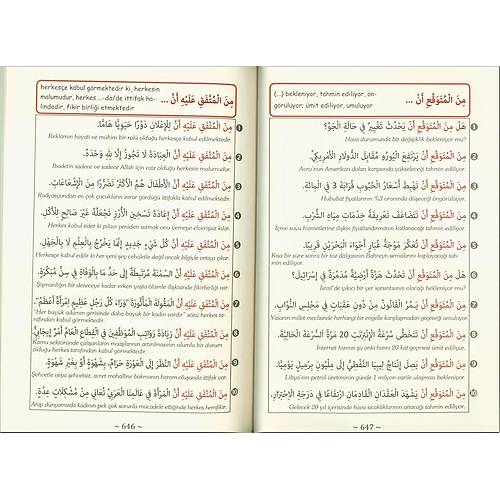 herkesçe kabul görmektedir ki, herkesin
malumudur, herkes ...-da/de ittifak ha-
lindedir, fikir birliği etmektedir
مِنَ الْمُتَّفَقِ عَلَيْهِ أَنَّ ...
مِنَ الْمُتَّفَقِ عَلَيْهِ أَنَّ لِلْإِعْلَانِ دَوْرًا حَيَوِيًّا هَامًّا.
Reklamın hayati ve mühim bir rolü olduğu herkesçe kabul edilmektedir.
مِنَ الْمُتَّفَقِ عَلَيْهِ أَنَّ الْعِبَادَةَ لَا تَجُوزُ إِلَّا لِلَّهِ وَحْدَهُ.
İbadetin sadece ve sadece Allah için caiz olduğu herkesin malumudur.
مِنَ الْمُتَّفَقِ عَلَيْهِ أَنَّ الْأَطْفَالَ هُمُ الْأَكْثَرُ تَضَرُّرًا مِنَ الْإِشْعَاعَاتِ.
Radyasyondan en çok çocukların zarar gördüğü ittifakla kabul edilmektedir.
مِنَ الْمُتَّفَقِ عَلَيْهِ أَنَّ إِعَادَةَ تَسْخِينِ الْأَرُزِّ تَجْعَلُهُ غَيْرَ صَالِحٍ لِلْأَكْلِ.
Herkes kabul eder ki pilavı yeniden ısıtmak onu yemeye elverişsiz kılar.
مِنَ الْمُتَّفَقِ عَلَيْهِ أَنَّ كُلَّ شَيْءٍ جَدِيدٍ إِنَّمَا يَخْرُجُ بِالْعِلْمِ لَا بِالْجَهْلِ.
Herkesçe kabul edilir ki her yeni şey cehaletle değil ancak bilgiyle ortaya çıkar.
مِنَ الْمُتَّفَقِ عَلَيْهِ أَنَّ السِّمْنَةَ مُرْتَبِطَةٌ إِلَى حَدٍّ مَا بِالْوَفَاةِ فِي سِنٍّ مُبَكِّرَةٍ.
Şişmanlığın bir dereceye kadar erken yaşta ölümle ilişkisinde fikirbirliği var.
مِنَ الْمُتَّفَقِ عَلَيْهِ أَنَّ الْمَقُولَةَ الْمَأْثُورَةَ "وَرَاءَ كُلِّ رَجُلٍ عَظِيمٍ اِمْرَأَةٌ أَعْظَمُ".
"Her büyük adamın gerisinde daha büyük bir kadın vardır" sözü herkes
tarafından kabul görmektedir.
مِنَ الْمُتَّفَقِ عَلَيْهِ أَنَّ زِيَادَةَ رَوَاتِبِ الْمُوَظَّفِينَ فِي الْقِطَاعِ الْعَامِّ أَمْرٌ إِيجَابِيٌّ.
Kamu sektöründe çalışanların maaşlarının artırılmasının olumlu bir durum
olduğu herkes tarafından kabul görmektedir.
مِنَ الْمُتَّفَقِ عَلَيْهِ أَنَّ النَّظَرَ إِلَى الْعَوْرَةِ حَرَامٌ، بِشَهْوَةٍ أَوْ بِغَيْرِ شَهْوَةٍ.
Şehvetle veya şehvetsiz, avret mahalline bakmanın haram oluşunda ittifak vardır.
مِنَ الْمُتَّفَقِ عَلَيْهِ أَنَّ الْمَرْأَةَ فِي عَالَمِنَا الْعَرَبِيِّ تُعَانِي مِنْ مُشْكِلَاتٍ عِدَّةٍ.
Arap dünyamızda kadının pek çok sorunla mücadele ettiğinde herkes hemfikir.
~ 646 ~
(...) bekleniyor, tahmin ediliyor, ön-
görülüyor; ümit ediliyor, umuluyor
مِنَ الْمُتَوَقَّعِ أَنْ ...
هَلْ مِنَ الْمُتَوَقَّعِ أَنْ يَحْدُثَ تَغْيِيرٌ فِي حَالَةِ الْجَوِّ؟
Hava durumunda bir değişiklik bekleniyor mu?
مِنَ الْمُتَوَقَّعِ أَنْ يَرْتَفِعَ الْيُورُو مُقَابِلَ الدُّولَارِ الْأَمْرِيكِيِّ.
Avro'nun Amerikan doları karşısında yükseleceği tahmin ediliyor.
مِنَ الْمُتَوَقَّعِ أَنْ تَهْبِطَ أَسْعَارُ الْحُبُوبِ قُرَابَةَ 3 فِي الْمِائَةِ.
Hububat fiyatlarının %3 oranında düşeceği öngörülüyor.
مِنَ الْمُتَوَقَّعِ أَنْ تَتَضَاعَفَ تَعْرِيفَةُ خِدْمَاتِ مِيَاهِ الشُّرْبِ.
İçme suyu hizmetlerine ilişkin fiyatlandırmanın katlanacağı tahmin ediliyor.
مِنَ الْمُتَوَقَّعِ أَنْ تُعَكِّرَ مَوْجَةُ غُبَارٍ أَجْوَاءَ الْبَحْرَيْنِ قَرِيبًا.
Kısa bir süre sonra bir toz dalgasının Bahreyn semalarını kaplayacağı tah-
min ediliyor.
هَلْ مِنَ الْمُتَوَقَّعِ أَنْ تَحْدُثَ هَزَّةٌ أَرْضِيَّةٌ مُدَمِّرَةٌ فِي إِسْرَائِيلَ؟
İsrail'de yıkıcı bir yer sarsıntısının olacağı bekleniyor mu?
مِنَ الْمُتَوَقَّعِ أَنْ يَمُرَّ الْقَانُونُ مِنْ دُونِ عَقَبَاتٍ فِي مَجْلِسِ النُّوَّابِ.
Yasanın millet meclisinde herhangi bir engelle karşılaşmadan geçeceği umuluyor.
مِنَ الْمُتَوَقَّعِ أَنْ تَتَخَطَّى سُرْعَةُ الْإِنْتَرْنِتِ 20 مَرَّةً السُّرْعَةَ الْحَالِيَّةَ.
İnternet hızının şu anki hızını 20 kat geçmesi ümit ediliyor.
مِنَ الْمُتَوَقَّعِ أَنْ يَصِلَ إِنْتَاجُ لِيبِيَا النِّفْطِيُّ إِلَى مِلْيُونِ بِرْمِيلٍ يَوْمِيًّا.
Libya'nın petrol üretiminin günde 1 milyon varile ulaşması bekleniyor.
مِنَ الْمُتَوَقَّعِ أَنْ يَشْهَدَ الْعَقْدَانِ الْقَادِمَانِ ارْتِفَاعًا فِي دَرَجَةِ الْحَرَارَةِ.
Gelecek 20 yıl içerisinde hava sıcaklıklarının artacağı tahmin ediliyor.
~ 647 ~